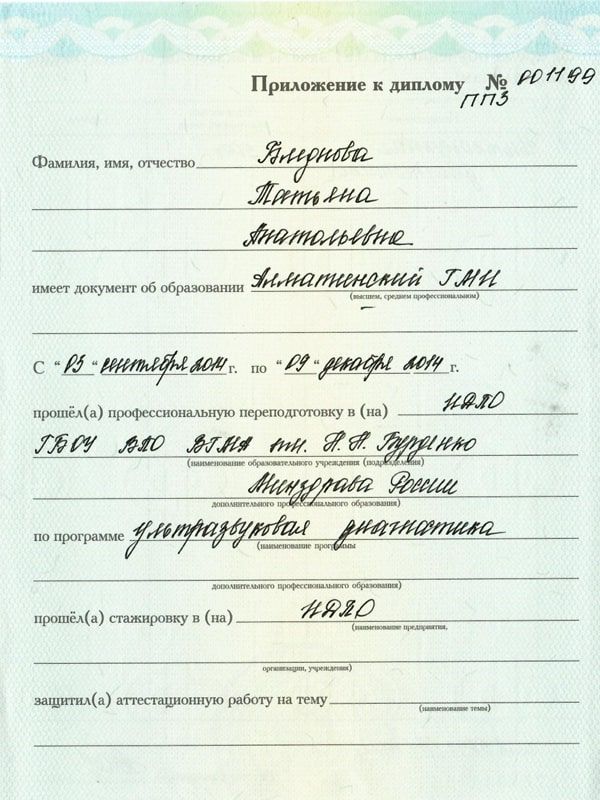 Приложение к диплому № 001199
ППЗ
Фамилия, имя, отчество Бледнова
Татьяна
Анатольевна
имеет документ об образовании Алматинский ГМИ
(высшем, среднем профессиональном)
С "03" сентября 2014 г. по "09" декабря 2014 г.
прошёл(а) профессиональную переподготовку в (на) ИДПО
ГБОУ ВПО ВГМА им. Н. Н. Бурденко
(наименование образовательного учреждения (подразделения)
Минздрава России
дополнительного профессионального образования)
по программе ультразвуковая диагностика
(наименование программы
дополнительного профессионального образования)
прошёл(а) стажировку в (на) ИДПО
(наименование предприятия,
организации, учреждения)
защитил(а) аттестационную работу на тему
(наименование темы)